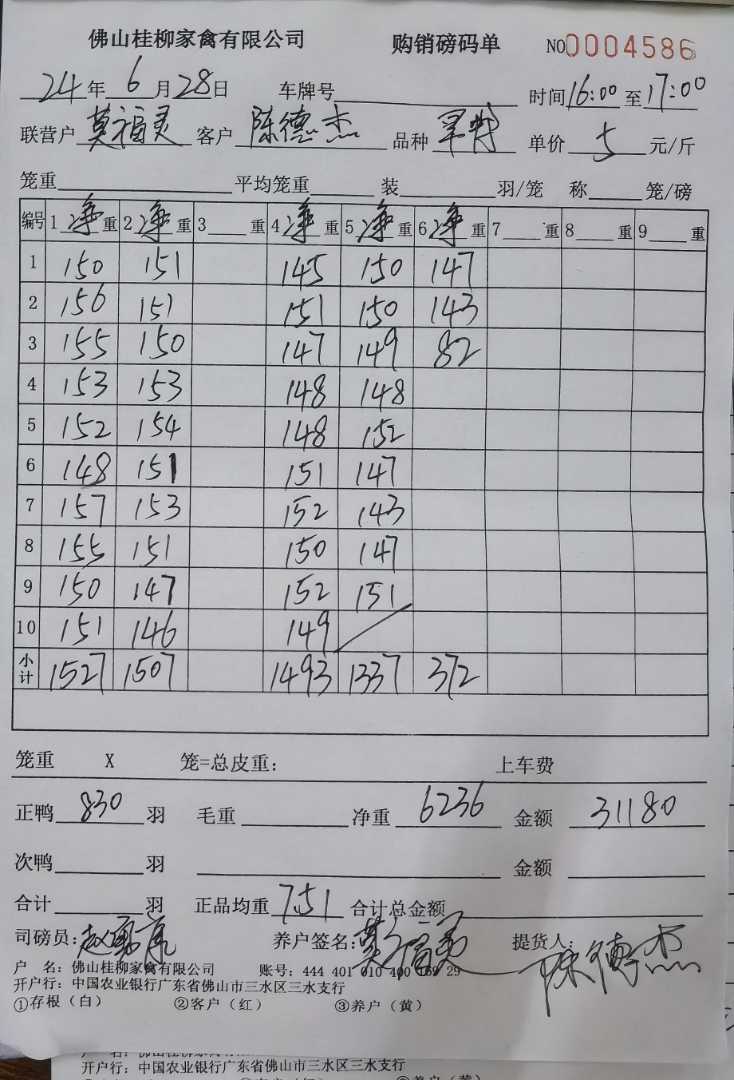 佛山桂柳家禽有限公司 购销磅码单 NO0004586
24年6月28日 车牌号 时间16:00至17:00
联营户 莫福灵 客户 陈德杰 品种 单价 5 元/斤
笼重 平均笼重 装 羽/笼 称 笼/磅
编号 1 净 重 2 净 重 3 重 4 净 重 5 净 重 6 净 重 7 重 8 重 9 重
1 150 151 145 150 147
2 156 151 151 150 143
3 155 150 147 149 82
4 153 153 148 148
5 152 154 148 152
6 148 151 151 147
7 157 153 152 143
8 155 151 150 147
9 150 147 152 151
10 151 146 149
小计 1527 1507 1493 1337 372
笼重 X 笼=总皮重: 上车费
正鸭 830 羽 毛重 净重 6236 金额 31180
次鸭 羽 金额
合计 羽 正品均重 7.51 合计总金额
司磅员: 养户签名: 莫福灵 提货人: 陈德杰
户 名: 佛山桂柳家禽有限公司 账号: 444 401 010 400 169 29
开户行: 中国农业银行广东省佛山市三水区三水支行
①存根(白) ②客户(红) ③养户(黄)
开户行: 中国农业银行广东省佛山市三水区三水支行